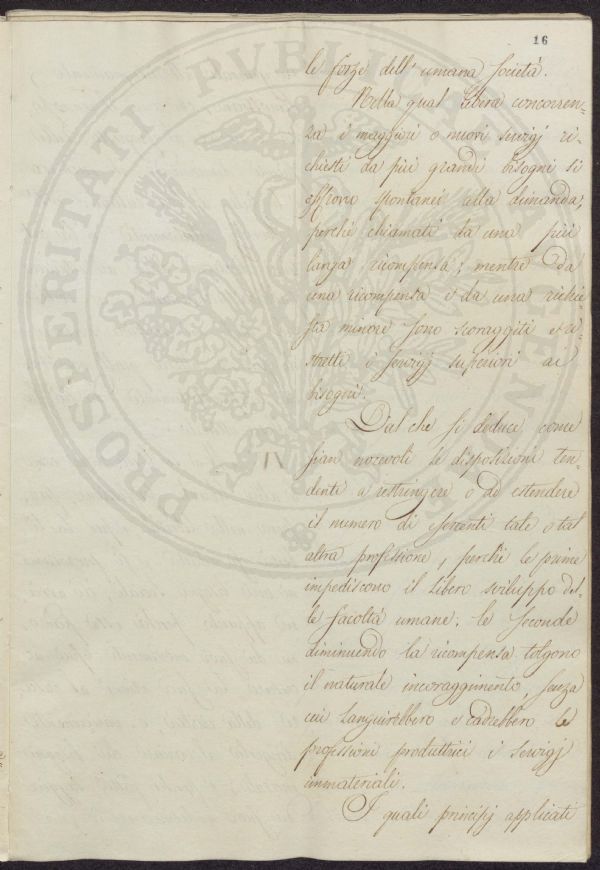 16
le forze dell'umana Società.
Nella qual libera concorren=
za i maggiori o nuovi servigj ri=
chiesti da più grandi bisogni si
offrono spontanei alla dimanda,
perchè chiamati da una più
larga ricompensa; mentre da
una ricompensa e da una richie=
sta minore sono scoraggiti e ri=
stretti i servigj superiori ai
bisogni.
Dal che si deduce come
sian nocevoli le disposizioni ten=
denti a restringere o ad estendere
il numero di esercenti tale o tal
altra professione, perchè le prime
impediscono il libero sviluppo del=
le facoltà umane; le seconde
diminuendo la ricompensa tolgono
il naturale incoraggimento, senza
cui languirebbero e cadrebbero le
professioni produttrici i servigj
immateriali.
I quali principj applicati
PROSPERITATI PVBLICAE